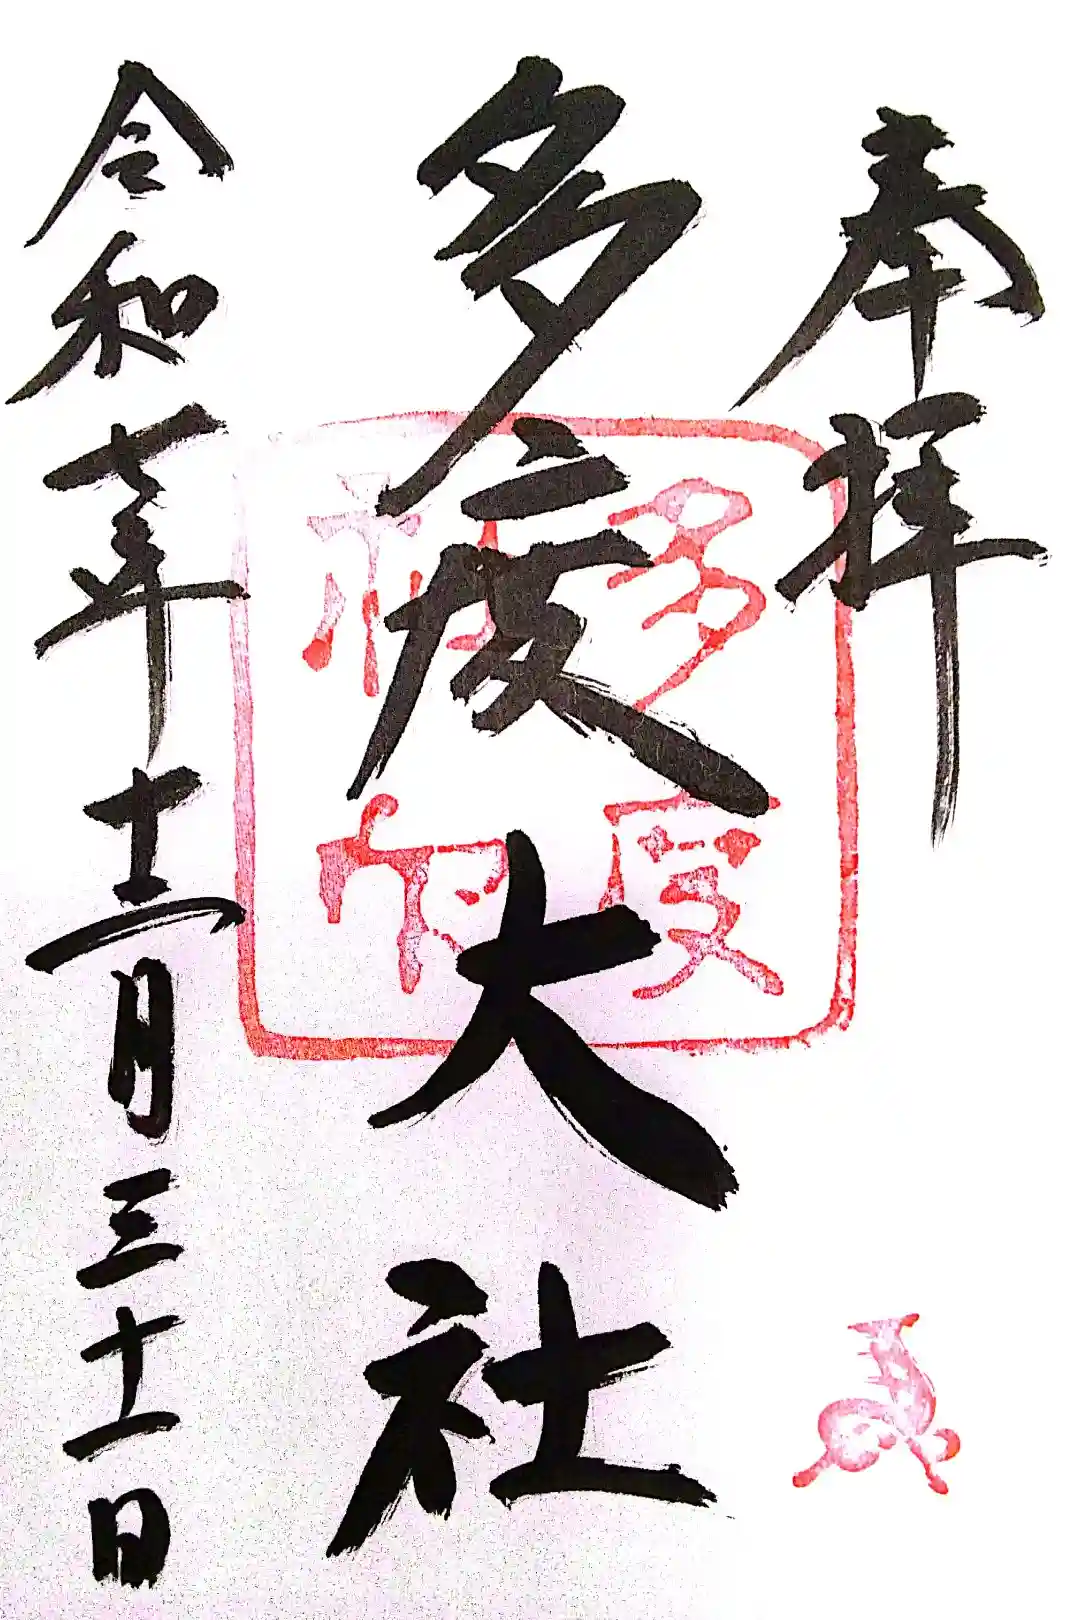 奉拝
多度大社
多度神社
令和七年十二月三十一日